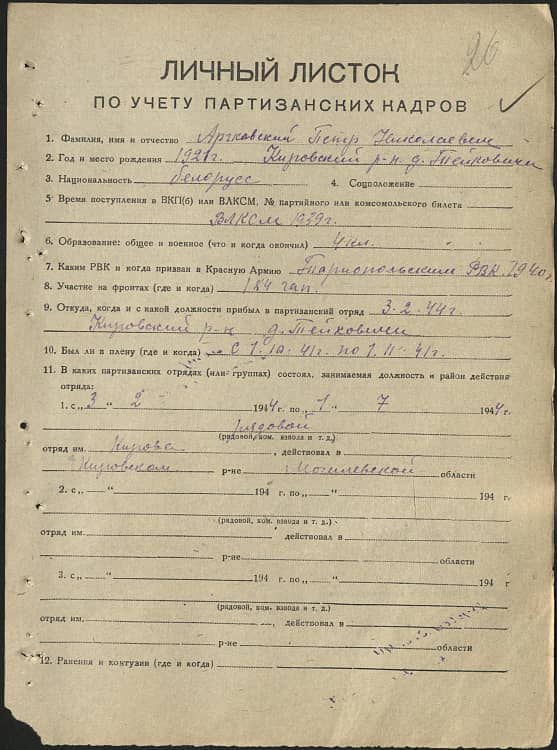 26
ЛИЧНЫЙ ЛИСТОК
ПО УЧЕТУ ПАРТИЗАНСКИХ КАДРОВ
1. Фамилия, имя и отчество Арковский Петр Николаевич
2. Год и место рождения 1921г. Кировский р-н д. Тейковичи
3. Национальность белорусс 4. Соцположение
5. Время поступления в ВКП(б) или ВЛКСМ, № партийного или комсомольского билета
ВЛКСМ 1939г.
6. Образование: общее и военное (что и когда окончил) 4 кл.
7. Каким РВК и когда призван в Красную Армию Тарнопольским РВК 1940г
8. Участие на фронтах (где и когда) 184 гап.
9. Откуда, когда и с какой должности прибыл в партизанский отряд 3-2-44г.
Кировский р-н д. Тейковичи
10. Был ли в плену (где и когда) С 1.10.41г. по 1.11.41г.
11. В каких партизанских отрядах (или группах) состоял, занимаемая должность и район действия
отряда:
1. с „3“ 2 1944 г. по „1“ 7 1944 г.
рядовой
(рядовой, ком. взвода и т. д.)
отряд им. Кирова, действовал в
Кировском р-не Могилевской области
2. с „ “ 194 г. по „ “ 194 г.
(рядовой, ком. взвода и т. д.)
отряд им. действовал в
р-не области
3. с „ “ 194 г. по „ “ 194 г
(рядовой, ком. взвода и т. д.)
отряд им. действовал в
р-не области
12. Ранения и контузии (где и когда)